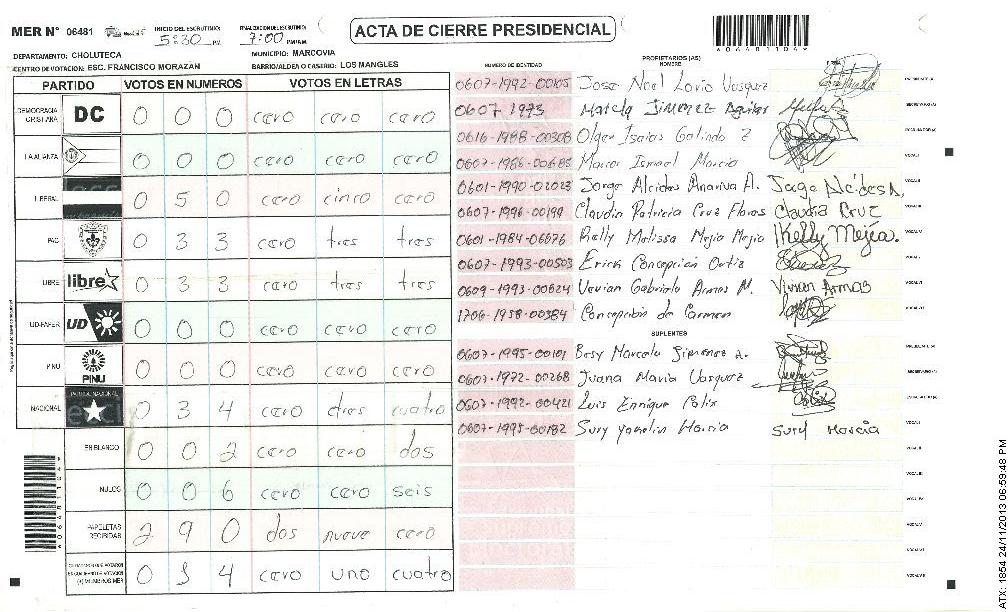 MER N° 06481 INICIO DEL ESCRUTINIO: 5:30 PM FINALIZACION DEL ESCRUTINIO: 7:00 PM/AM
ACTA DE CIERRE PRESIDENCIAL
DEPARTAMENTO: CHOLUTECA MUNICIPIO: MARCOVIA
CENTRO DE VOTACION: ESC. FRANCISCO MORAZAN BARRIO/ALDEA O CASERIO: LOS MANGLES
PARTIDO VOTOS EN NUMEROS VOTOS EN LETRAS
DEMOCRACIA CRISTIANA DC 0 0 0 cero cero cero
LA ALIANZA 0 0 0 cero cero cero
LIBERAL 0 5 0 cero cinco cero
PAC 0 3 3 cero tres tres
LIBRE libre 0 3 3 cero tres tres
UD-FAPER UD 0 0 0 cero cero cero
PINU PINU 0 0 0 cero cero cero
NACIONAL 0 3 4 cero tres cuatro
EN BLANCO 0 0 2 cero cero dos
NULOS 0 0 6 cero cero seis
PAPELETAS RECIBIDAS 2 9 0 dos nueve cero
0 4 cero uno cuatro
NUMERO DE IDENTIDAD PROPIETARIOS (AS) NOMBRE
0607-1992-00105 Jose Noel Lovio Vasquez
0607 1973 Marcla JIMENEZ Aguilar
0616-1998-00308 Olger Isaias Galindo Z
0607-1986-00685 Ismael Marcia
0601-1990-02023 Jorge Alcides Anariva A. Jorge Alcides A.
0607-1996-00199 Claudia Patricia Cruz Flores Claudia Cruz
0601-1984-06676 Kelly Melissa Mejia Mejia Kelly Mejia.
0607-1993-00503 Erick Concepción Ortiz
0609-1993-00624 Vevian Gabriela Armas M. Vivien Armas
1706-1958-00384 Concepción de Carmen
SUPLENTES
0607-1995-00101 Besy Marcela Jimenez A.
0607-1972-00268 Juana Maria Vasquez
0607-1992-00421 Luis Enrique Calix
0607-1995-00182 Sury Yamelin Marcia Sury Marcia
A06481104
ATX: 1854 24/11/2013 06:59:48 PM